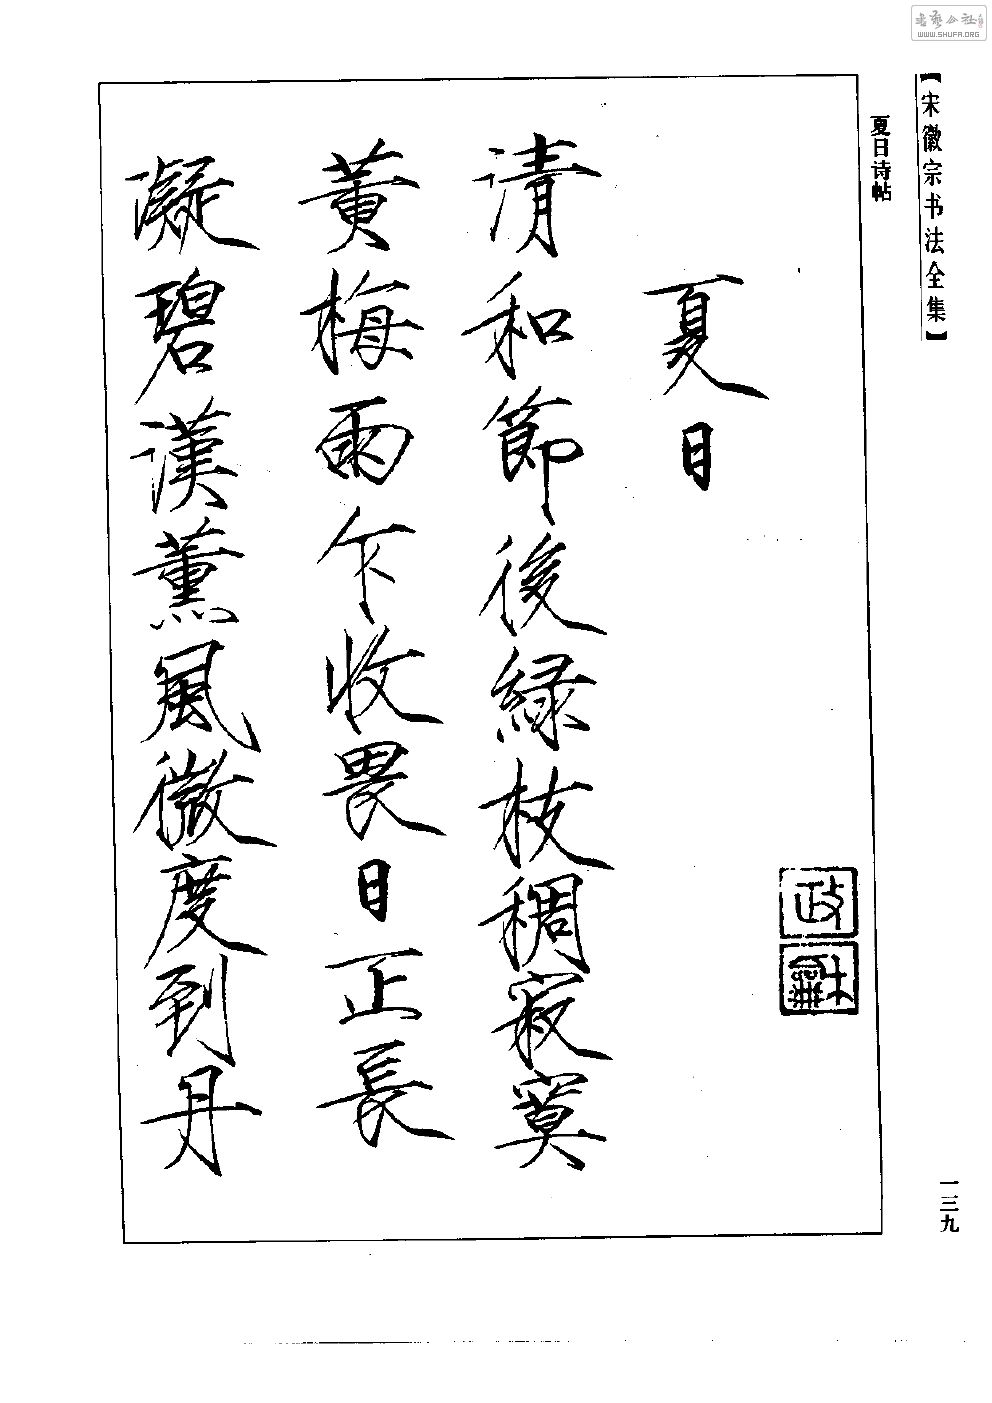 书艺公社
WWW.SHUFA.ORG
【宋徽宗书法全集】
夏日诗帖
夏日
清和節後緑枝稠寂寞
黄梅雨乍收畏日正長
凝碧漢薰風微度到丹
政龢
一三九